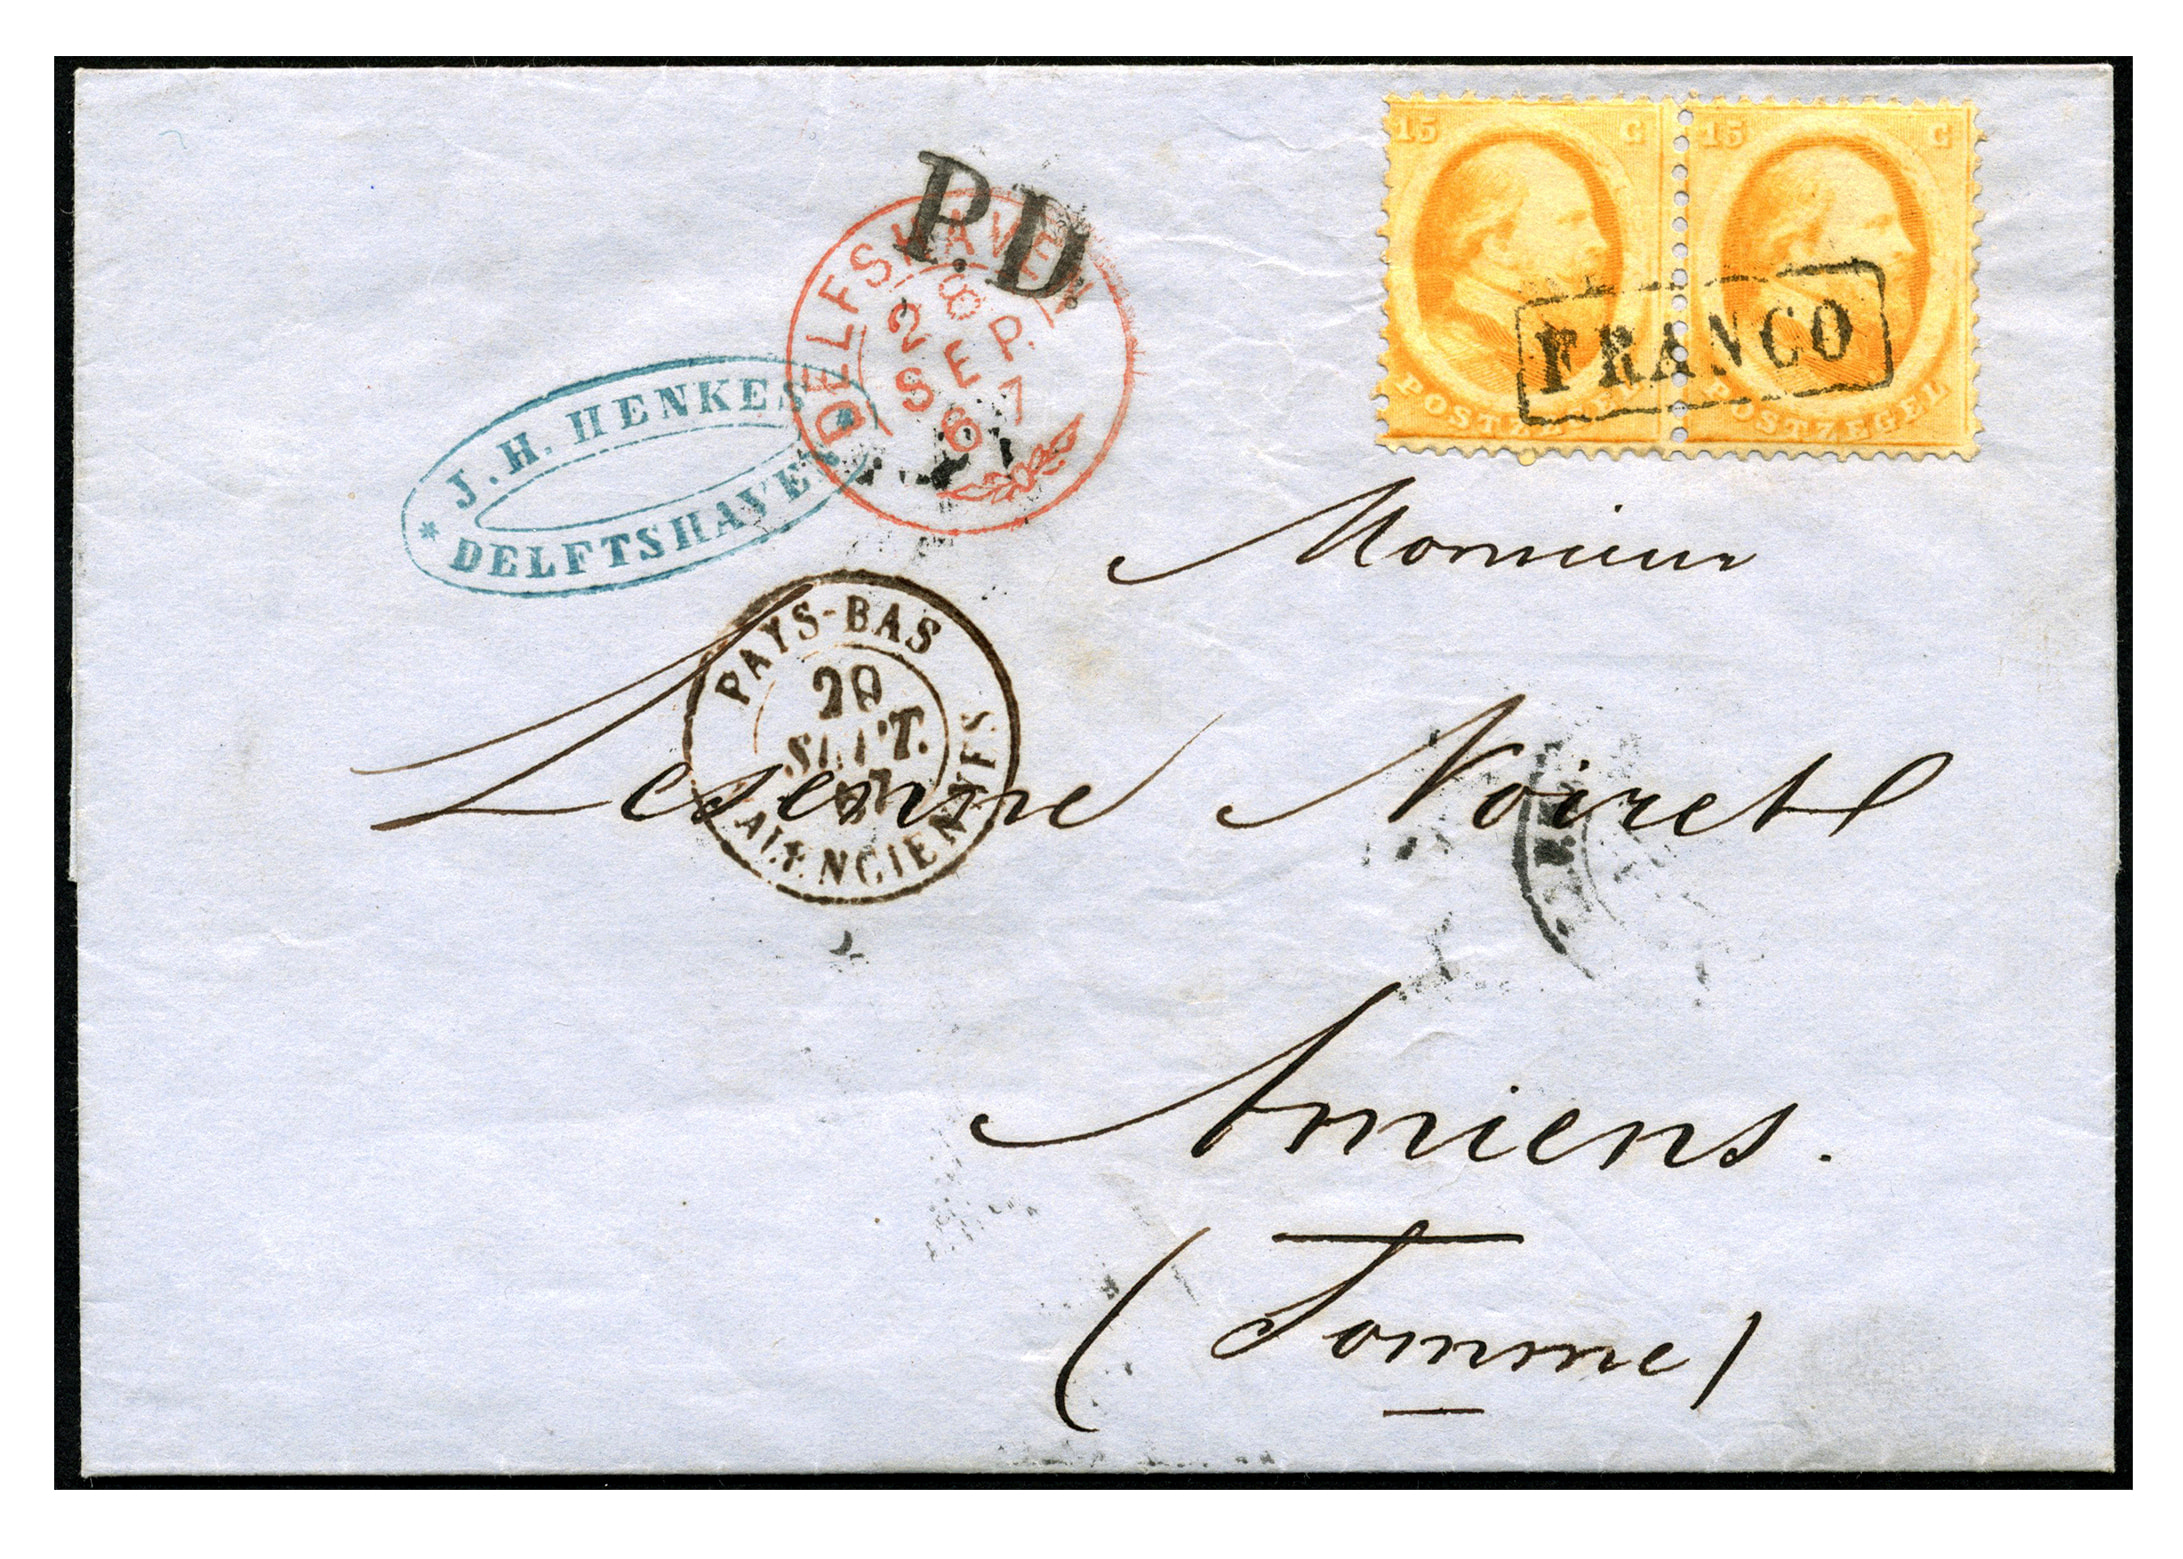 15 C 15 C
POSTZEGEL POSTZEGEL
FRANCO
P.D.
DELFSHAVEN
28
SEP.
67
J. H. HENKES
* DELFTSHAVEN *
Monsieur
PAYS-BAS
SEPT.
67
VALENCIENNES
Lesenne Noiret
Amiens.
(Somme)